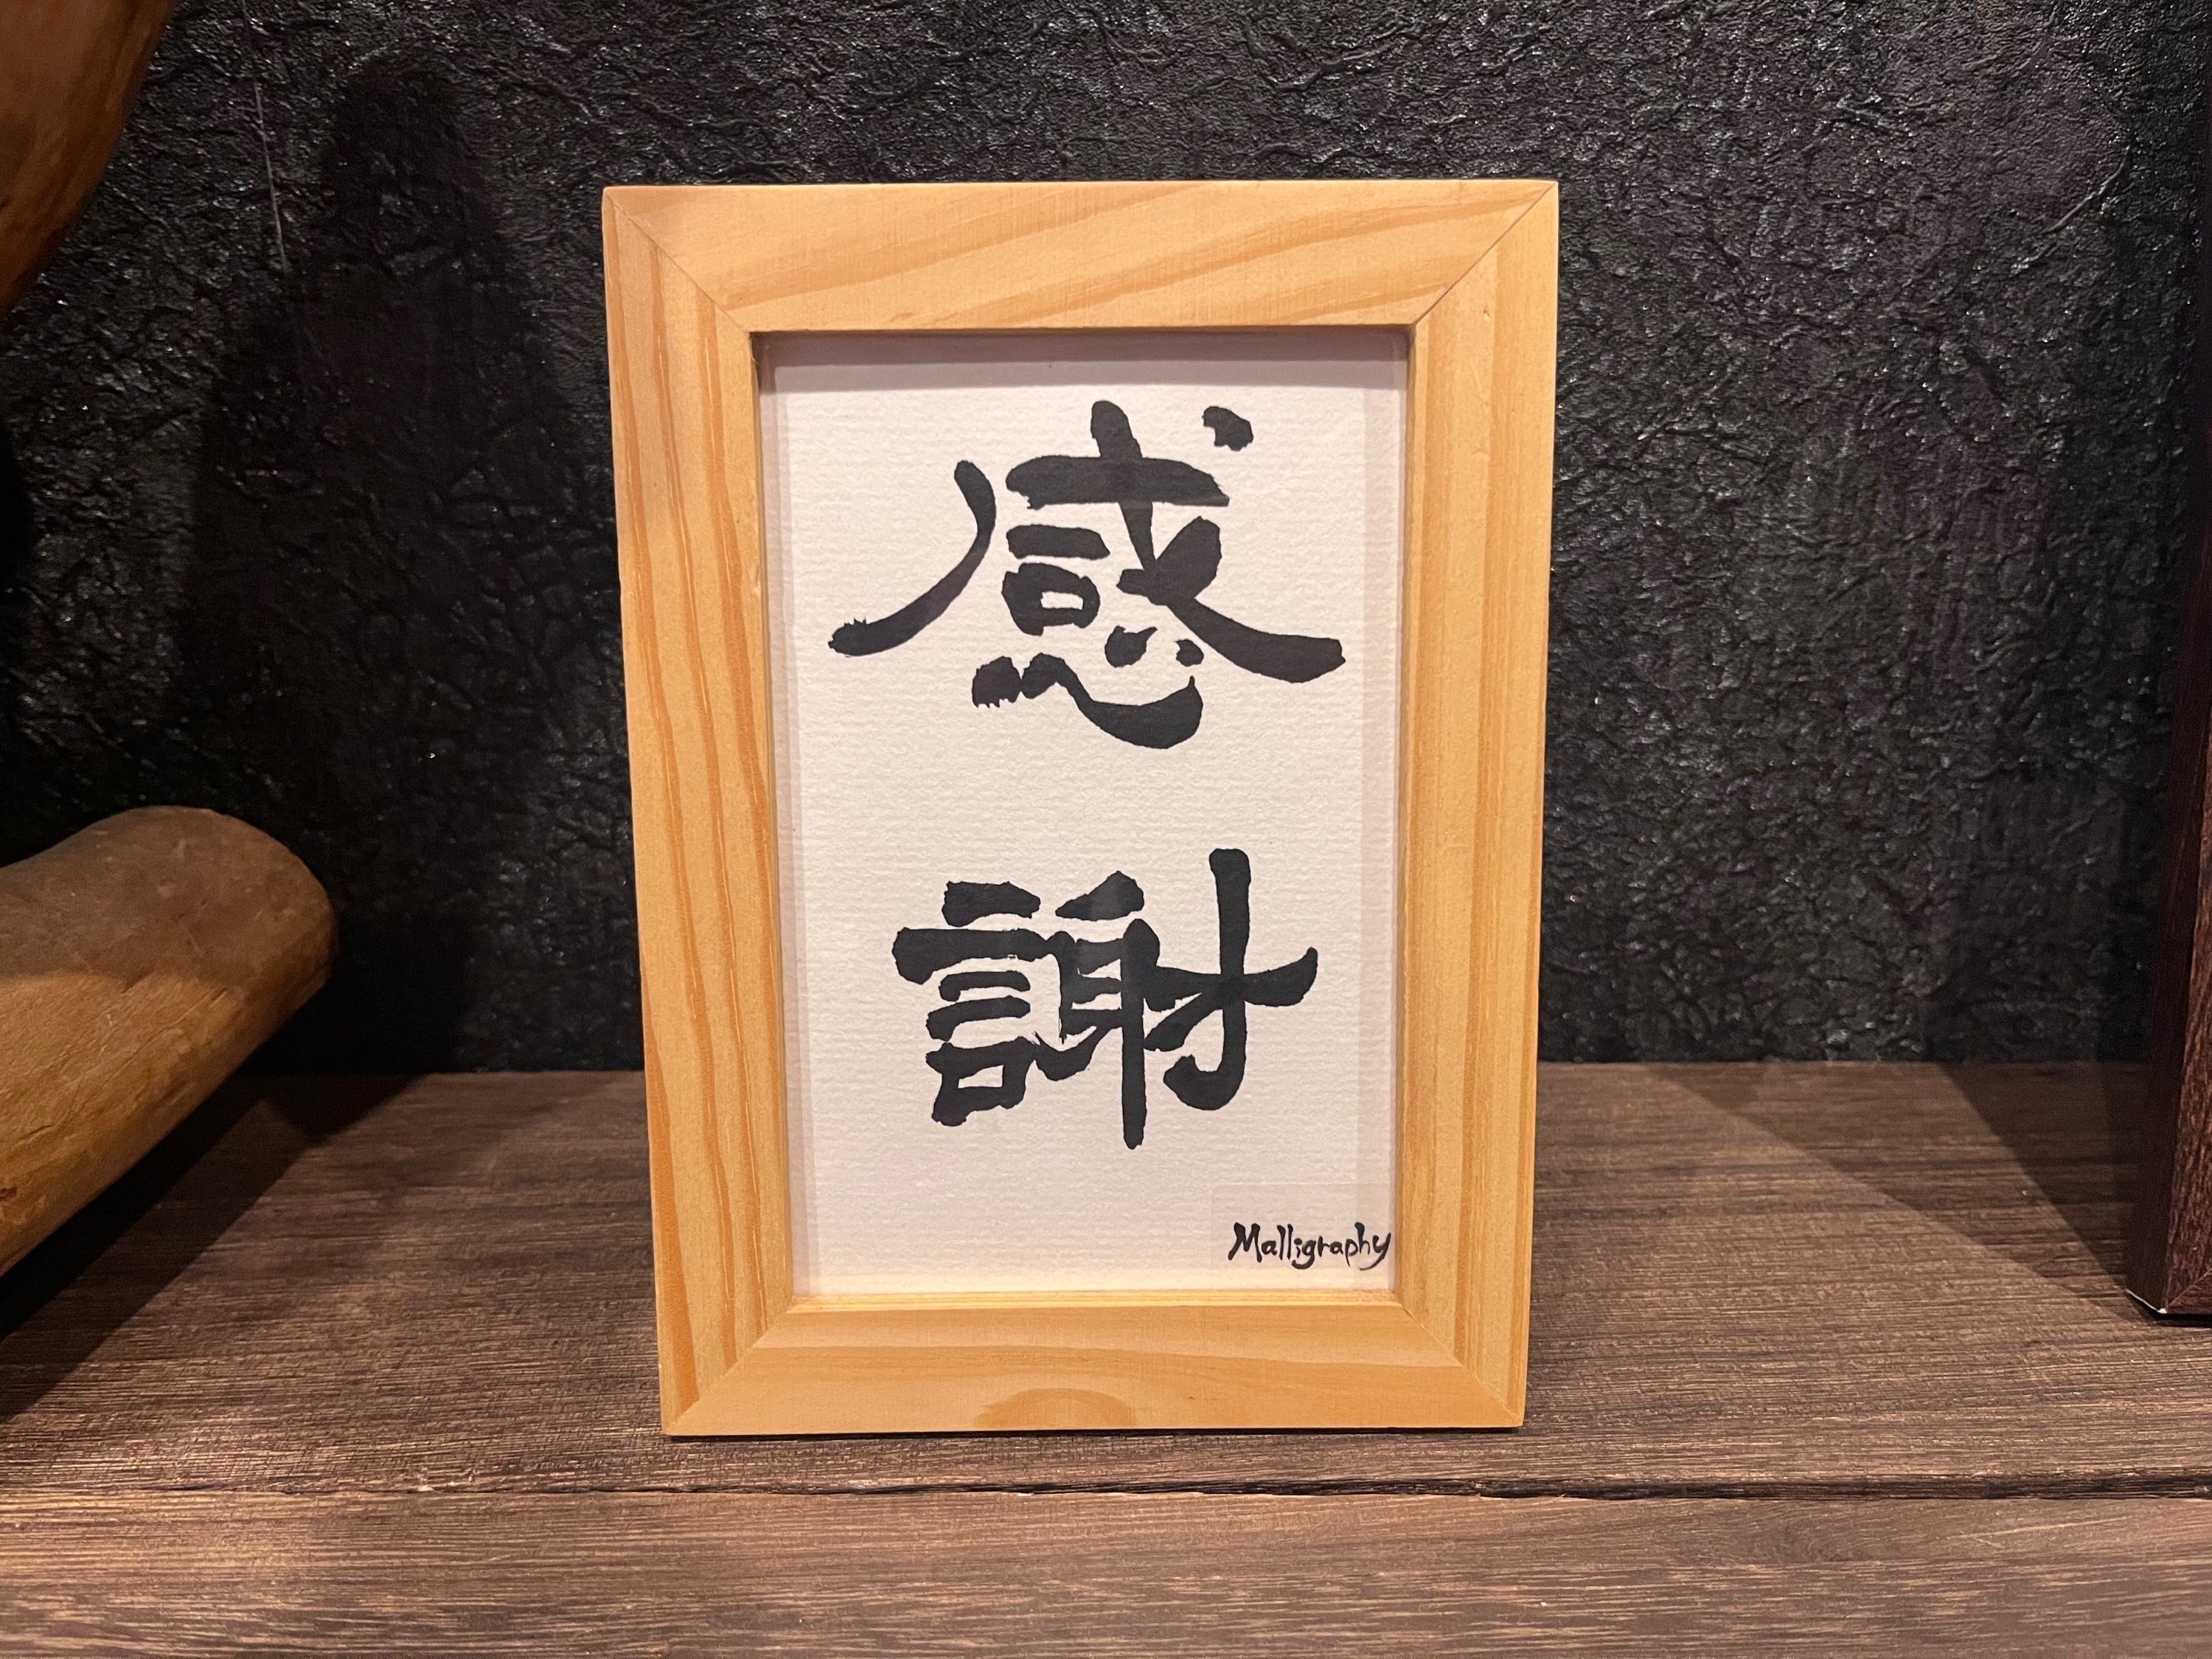 感
謝
Malligraphy